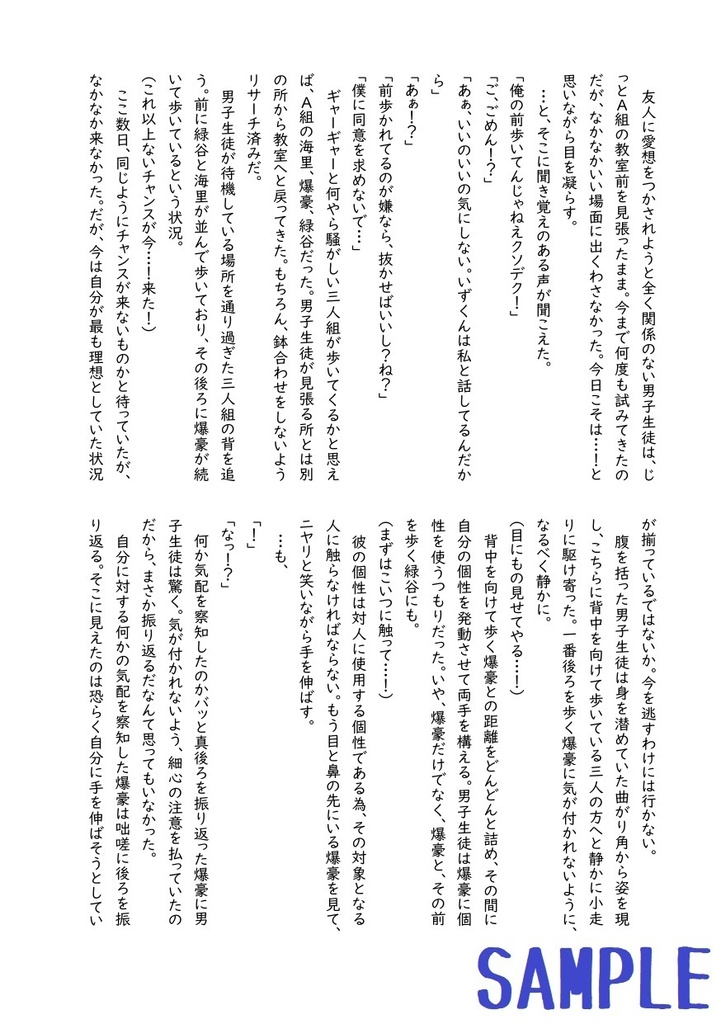 友人に愛想をつかされようと全く関係のない男子生徒は、じ
っとＡ組の教室前を見張ったまま。今まで何度も試みてきたの
だが、なかなかいい場面に出くわさなかった。今日こそは…！と
思いながら目を凝らす。
…と、そこに聞き覚えのある声が聞こえた。
「俺の前歩いてんじゃねえクソデク！」
「ご、ごめん！？」
「あぁ、いいのいいの気にしない。いずくんは私と話してるんだか
ら」
「あぁ！？」
「前歩かれてるのが嫌なら、抜かせばいいし？ね？」
「僕に同意を求めないで…」
ギャーギャーと何やら騒がしい三人組が歩いてくるかと思え
ば、Ａ組の海里、爆豪、緑谷だった。男子生徒が見張る所とは別
の所から教室へと戻ってきた。もちろん、鉢合わせをしないよう
リサーチ済みだ。
男子生徒が待機している場所を通り過ぎた三人組の背を追
う。前に緑谷と海里が並んで歩いており、その後ろに爆豪が続
いて歩いているという状況。
（これ以上ないチャンスが今…！来た！）
ここ数日、同じようにチャンスが来ないものかと待っていたが、
なかなか来なかった。だが、今は自分が最も理想としていた状況
が揃っているではないか。今を逃すわけには行かない。
腹を括った男子生徒は身を潜めていた曲がり角から姿を現
し、こちらに背中を向けて歩いている三人の方へと静かに小走
りに駆け寄った。一番後ろを歩く爆豪に気が付かれないように、
なるべく静かに。
（目にもの見せてやる…！）
背中を向けて歩く爆豪との距離をどんどんと詰め、その間に
自分の個性を発動させて両手を構える。男子生徒は爆豪に個
性を使うつもりだった。いや、爆豪だけでなく、爆豪と、その前
を歩く緑谷にも。
（まずはこいつに触って…！）
彼の個性は対人に使用する個性である為、その対象となる
人に触らなければならない。もう目と鼻の先にいる爆豪を見て、
ニヤリと笑いながら手を伸ばす。
…も、
「！」
「なっ！？」
何か気配を察知したのかバッと真後ろを振り返った爆豪に男
子生徒は驚く。気が付かれないよう、細心の注意を払っていたの
だから、まさか振り返るだなんて思ってもいなかった。
自分に対する何かの気配を察知した爆豪は咄嗟に後ろを振
り返る。そこに見えたのは恐らく自分に手を伸ばそうとしてい
SAMPLE